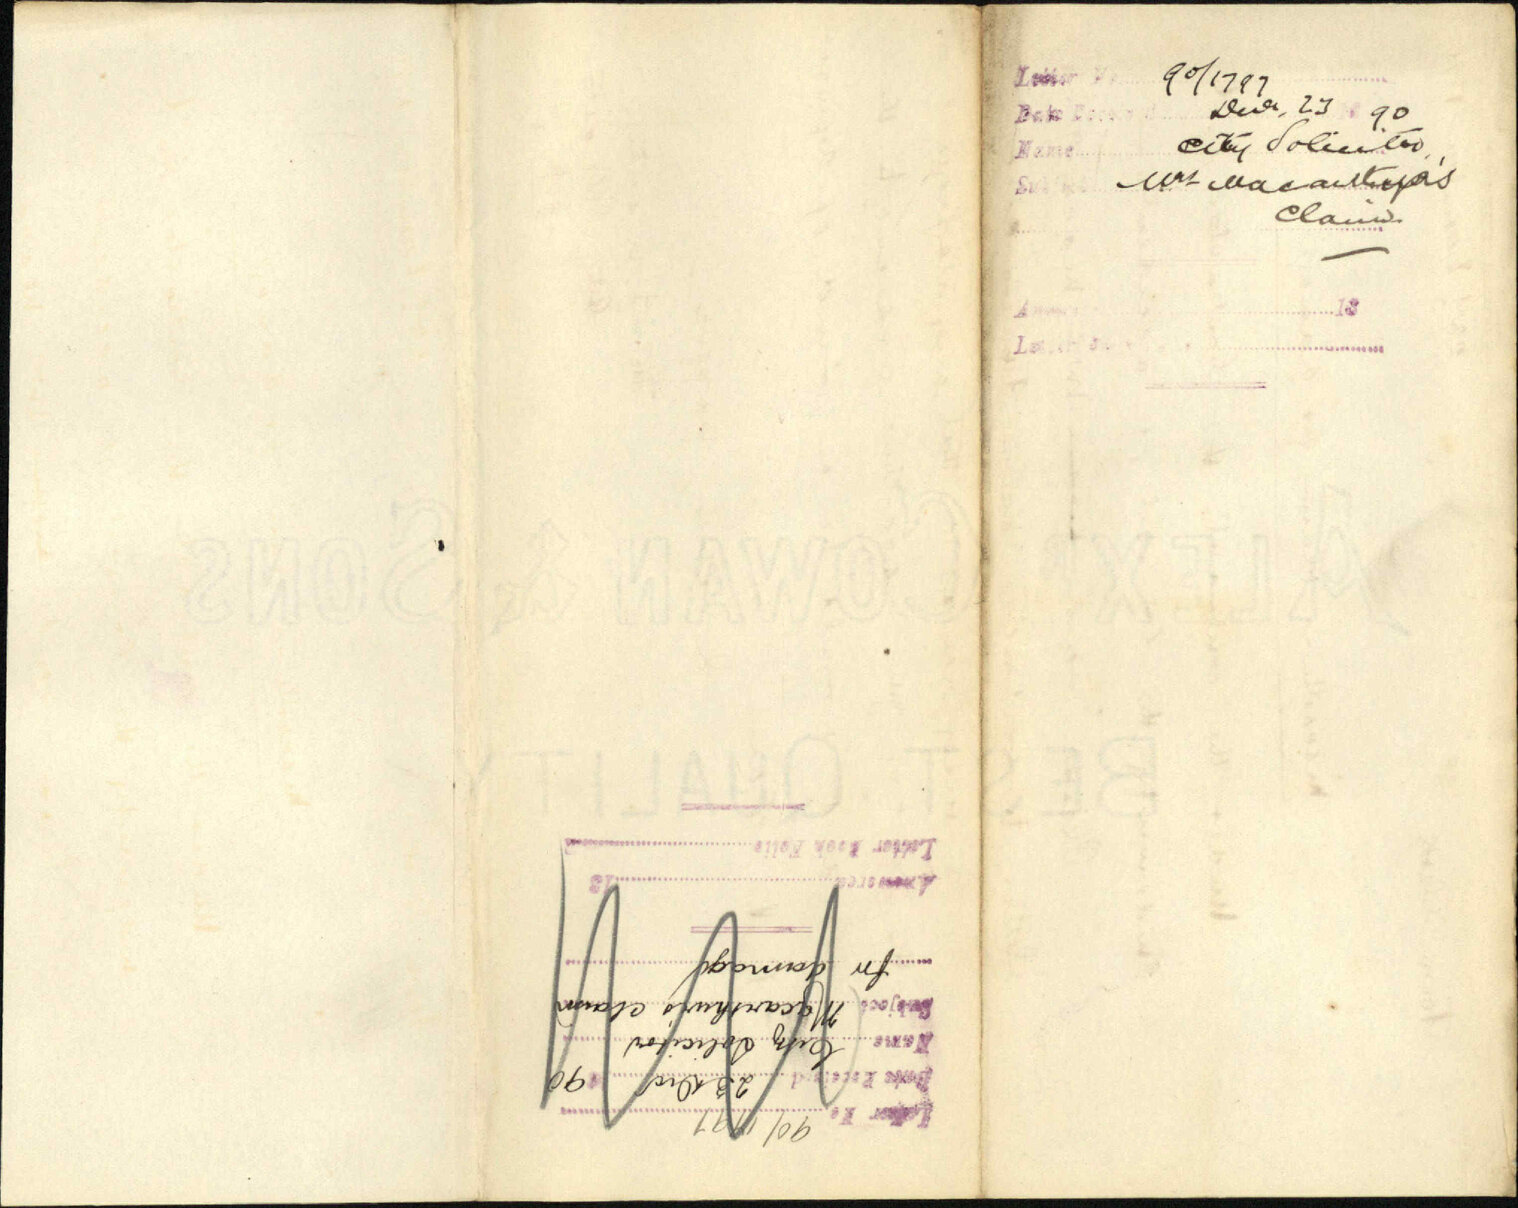 Letter No 90/1797
Date Received Decr. 23 90
Name City Solicitor
Subject Mrs Macarthur's
Claim
Answered 18
Letter Book
Letter No 90/1797
Date Received 23 Dec 1890
Name City Solicitor
Subject Macarthur's claim
for damage
Answered 18
Letter Book Folio
ALEXR COWAN & SONS
BEST QUALITY